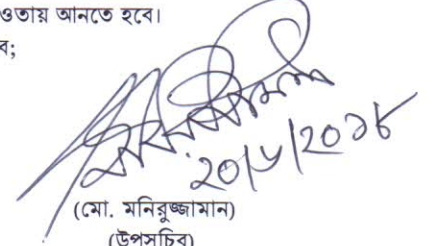 ওতায় আনতে হবে।
ব;
২০/৮/২০১৮
(মো. মনিরুজ্জামান)
(উপসচিব)